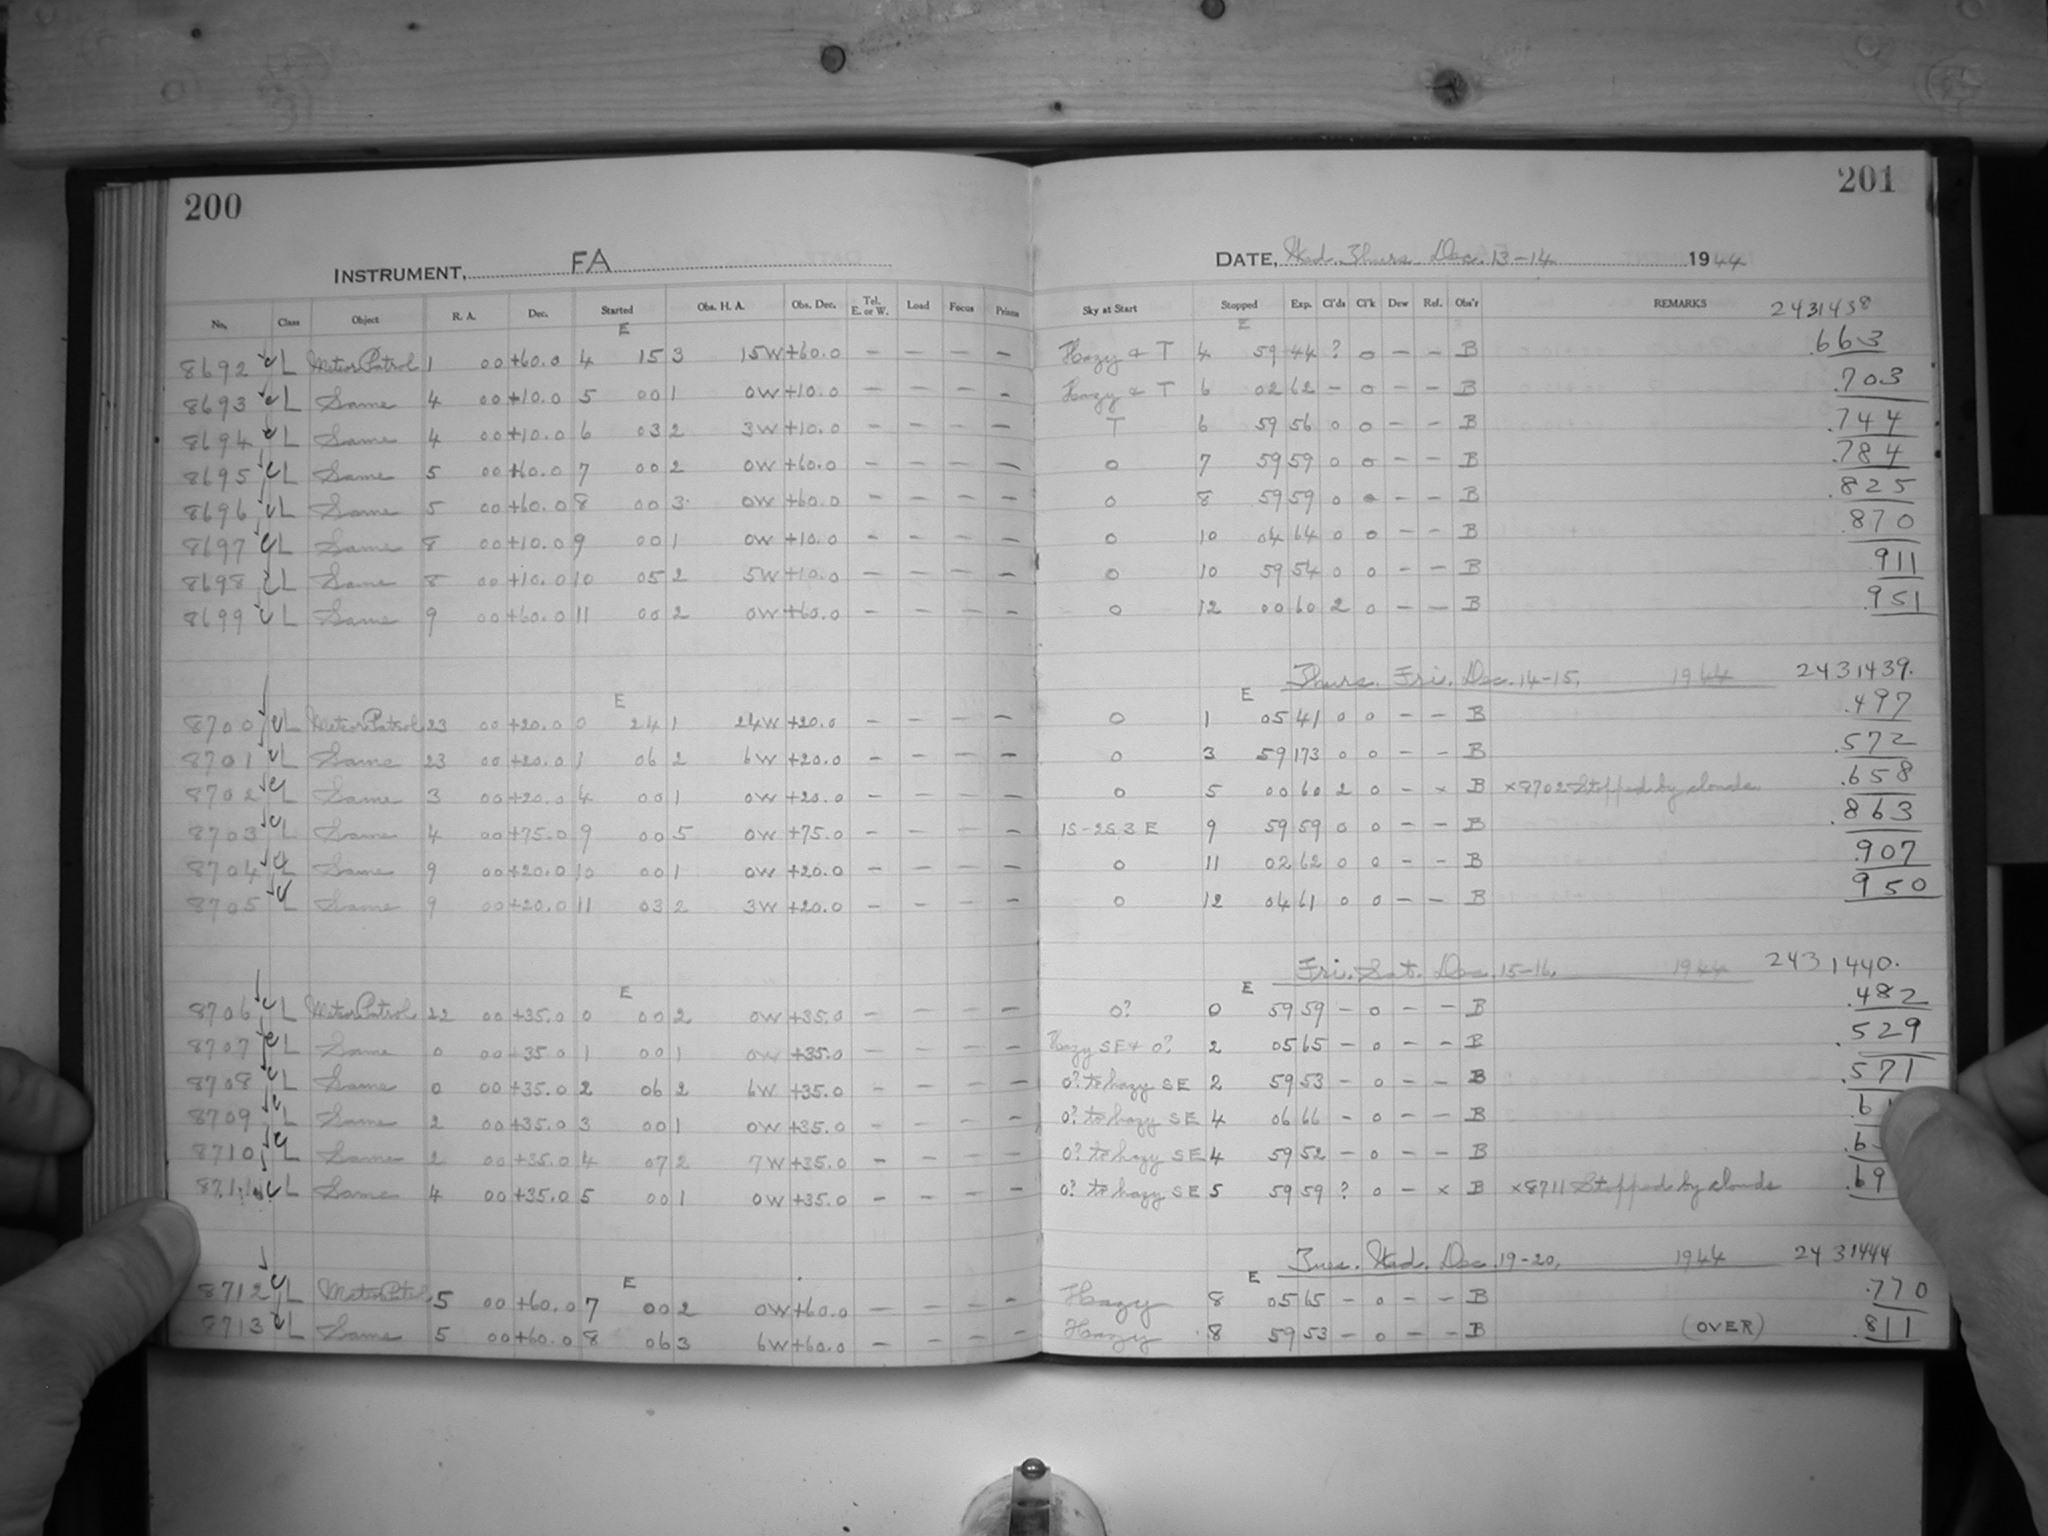 200
INSTRUMENT, FA
No. Class Object R. A. Dec. Started Obs. H. A. Obs. Dec. Tel. E. or W. Load Focus Prisms
E
8692 L Meteor Patrol 1 00 +60.0 4 15 3 15W +60.0 – – – –
8693 L Same 4 00 +10.0 5 00 1 0W +10.0 – – – –
8694 L Same 4 00 +10.0 6 03 2 3W +10.0 – – – –
8695 L Same 5 00 +60.0 7 00 2 0W +60.0 – – – –
8696 L Same 5 00 +60.0 8 00 3 0W +60.0 – – – –
8697 L Same 8 00 +10.0 9 00 1 0W +10.0 – – – –
8698 L Same 8 00 +10.0 10 05 2 5W +10.0 – – – –
8699 L Same 9 00 +60.0 11 00 2 0W +60.0 – – – –
E
8700 L Meteor Patrol 23 00 +20.0 0 24 1 24W +20.0 – – – –
8701 L Same 23 00 +20.0 1 06 2 6W +20.0 – – – –
8702 L Same 3 00 +20.0 4 00 1 0W +20.0 – – – –
8703 L Same 4 00 +75.0 9 00 5 0W +75.0 – – – –
8704 L Same 9 00 +20.0 10 00 1 0W +20.0 – – – –
8705 L Same 9 00 +20.0 11 03 2 3W +20.0 – – – –
E
8706 L Meteor Patrol 22 00 +35.0 0 00 2 0W +35.0 – – – –
8707 L Same 0 00 +35.0 1 00 1 0W +35.0 – – – –
8708 L Same 0 00 +35.0 2 06 2 6W +35.0 – – – –
8709 L Same 2 00 +35.0 3 00 1 0W +35.0 – – – –
8710 L Same 2 00 +35.0 4 07 2 7W +35.0 – – – –
8711 L Same 4 00 +35.0 5 00 1 0W +35.0 – – – –
E
8712 L Meteor Patrol 5 00 +60.0 7 00 2 0W +60.0 – – – –
8713 L Same 5 00 +60.0 8 06 3 6W +60.0 – – – –
201
DATE, Wed. Thurs. Dec. 13-14 1944
Sky at Start Stopped Exp. Cl'ds Cl'k Dew Ref. Obs'r REMARKS 2431438
E
Hazy & T 4 59 44 ? 0 – – B .663
Hazy & T 6 02 62 – 0 – – B .703
T 6 59 56 0 0 – – B .744
0 7 59 59 0 0 – – B .784
0 8 59 59 0 0 – – B .825
0 10 04 64 0 0 – – B .870
0 10 59 54 0 0 – – B 911
0 12 00 60 2 0 – – B .951
Thurs. Fri. Dec. 14-15, 1944 2431439.
E
0 1 05 41 0 0 – – B .497
0 3 59 173 0 0 – – B .572
0 5 00 60 2 0 – x B x8702 Stopped by clouds .658
1S-2S 3E 9 59 59 0 0 – – B .863
0 11 02 62 0 0 – – B .907
0 12 04 61 0 0 – – B 950
Fri. Sat. Dec. 15-16, 1944 2431440.
E
0? 0 59 59 – 0 – – B .482
Hazy SE & 0? 2 05 65 – 0 – – B .529
0? to hazy SE 2 59 53 – 0 – – B .571
0? to hazy SE 4 06 66 – 0 – – B .6
0? to hazy SE 4 59 52 – 0 – – B .6
0? to hazy SE 5 59 59 ? 0 – x B x8711 Stopped by clouds .69
Tues. Wed. Dec. 19-20, 1944 2431444
E
Hazy 8 05 65 – 0 – – B .770
Hazy 8 59 53 – 0 – – B (OVER) .811